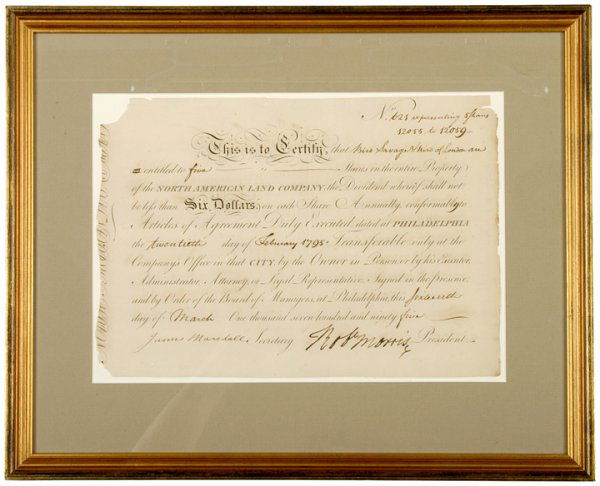 representing 5 Shares
12055 to 12059
This is to Certify, that Bird Savage & Bird of London are
entitled to five Shares in the entire Property
of the NORTH AMERICAN LAND COMPANY; the Dividend whereof shall not
be less than Six Dollars on each Share Annually, conformably to
Articles of Agreement Duly Executed; dated at PHILADELPHIA
the twentieth day of February 1795 Transferable only at the
Company's Office in that CITY, by the Owner in Person, or by his Executor,
Administrator, Attorney, or Legal Representative, Signed in the presence
and by Order of the Board of Managers, at Philadelphia, this Sixteenth
day of March One thousand seven hundred and ninety five
James Marshall, Secretary Robt Morris President